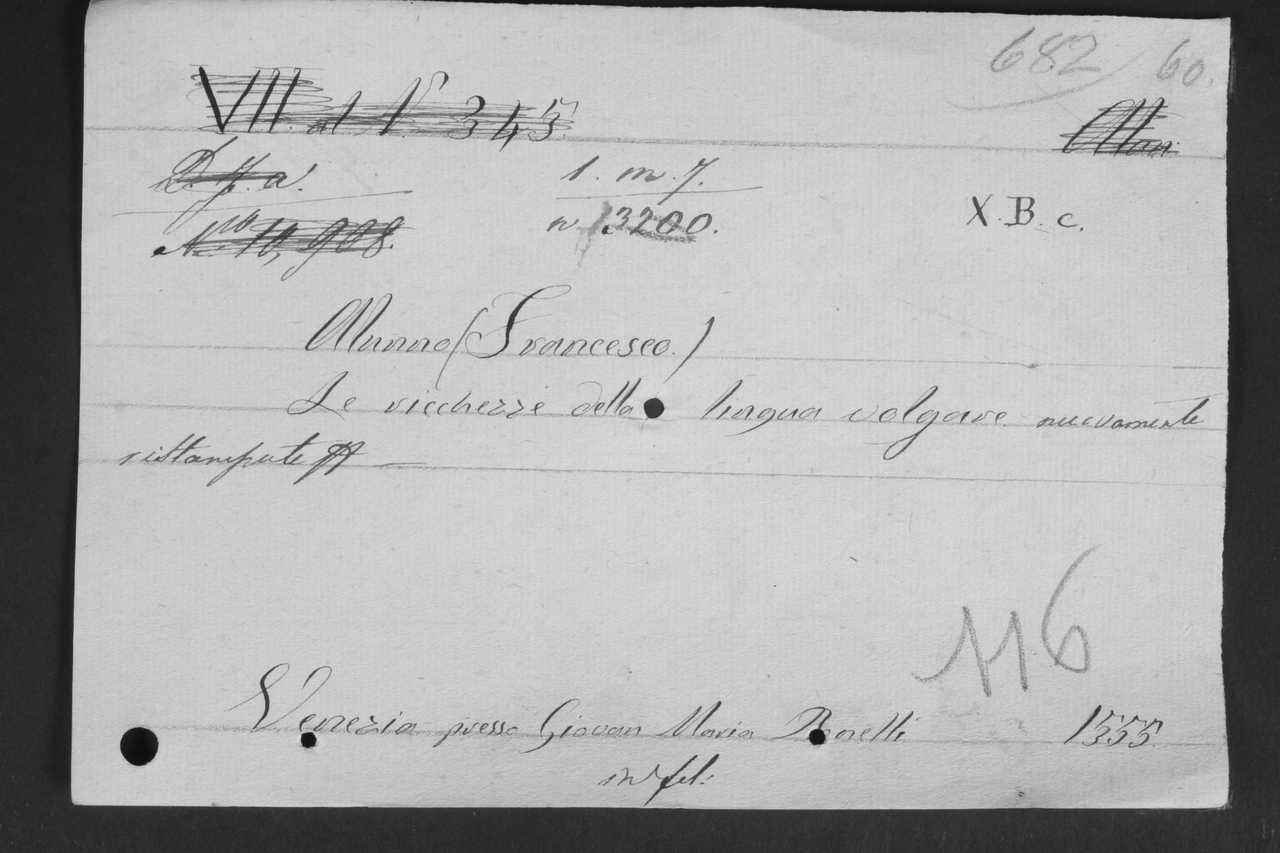 682 60.
VII. al N. 345
D. f. a.
1. m. 7.
X. B. c.
No 10,908.
n. 13200.
Alunno (Francesco.)
Le ricchezze della lingua volgare nuovamente
ristampate
116
Venezia presso Giovan Maria Bonelli 1555.
in fol: